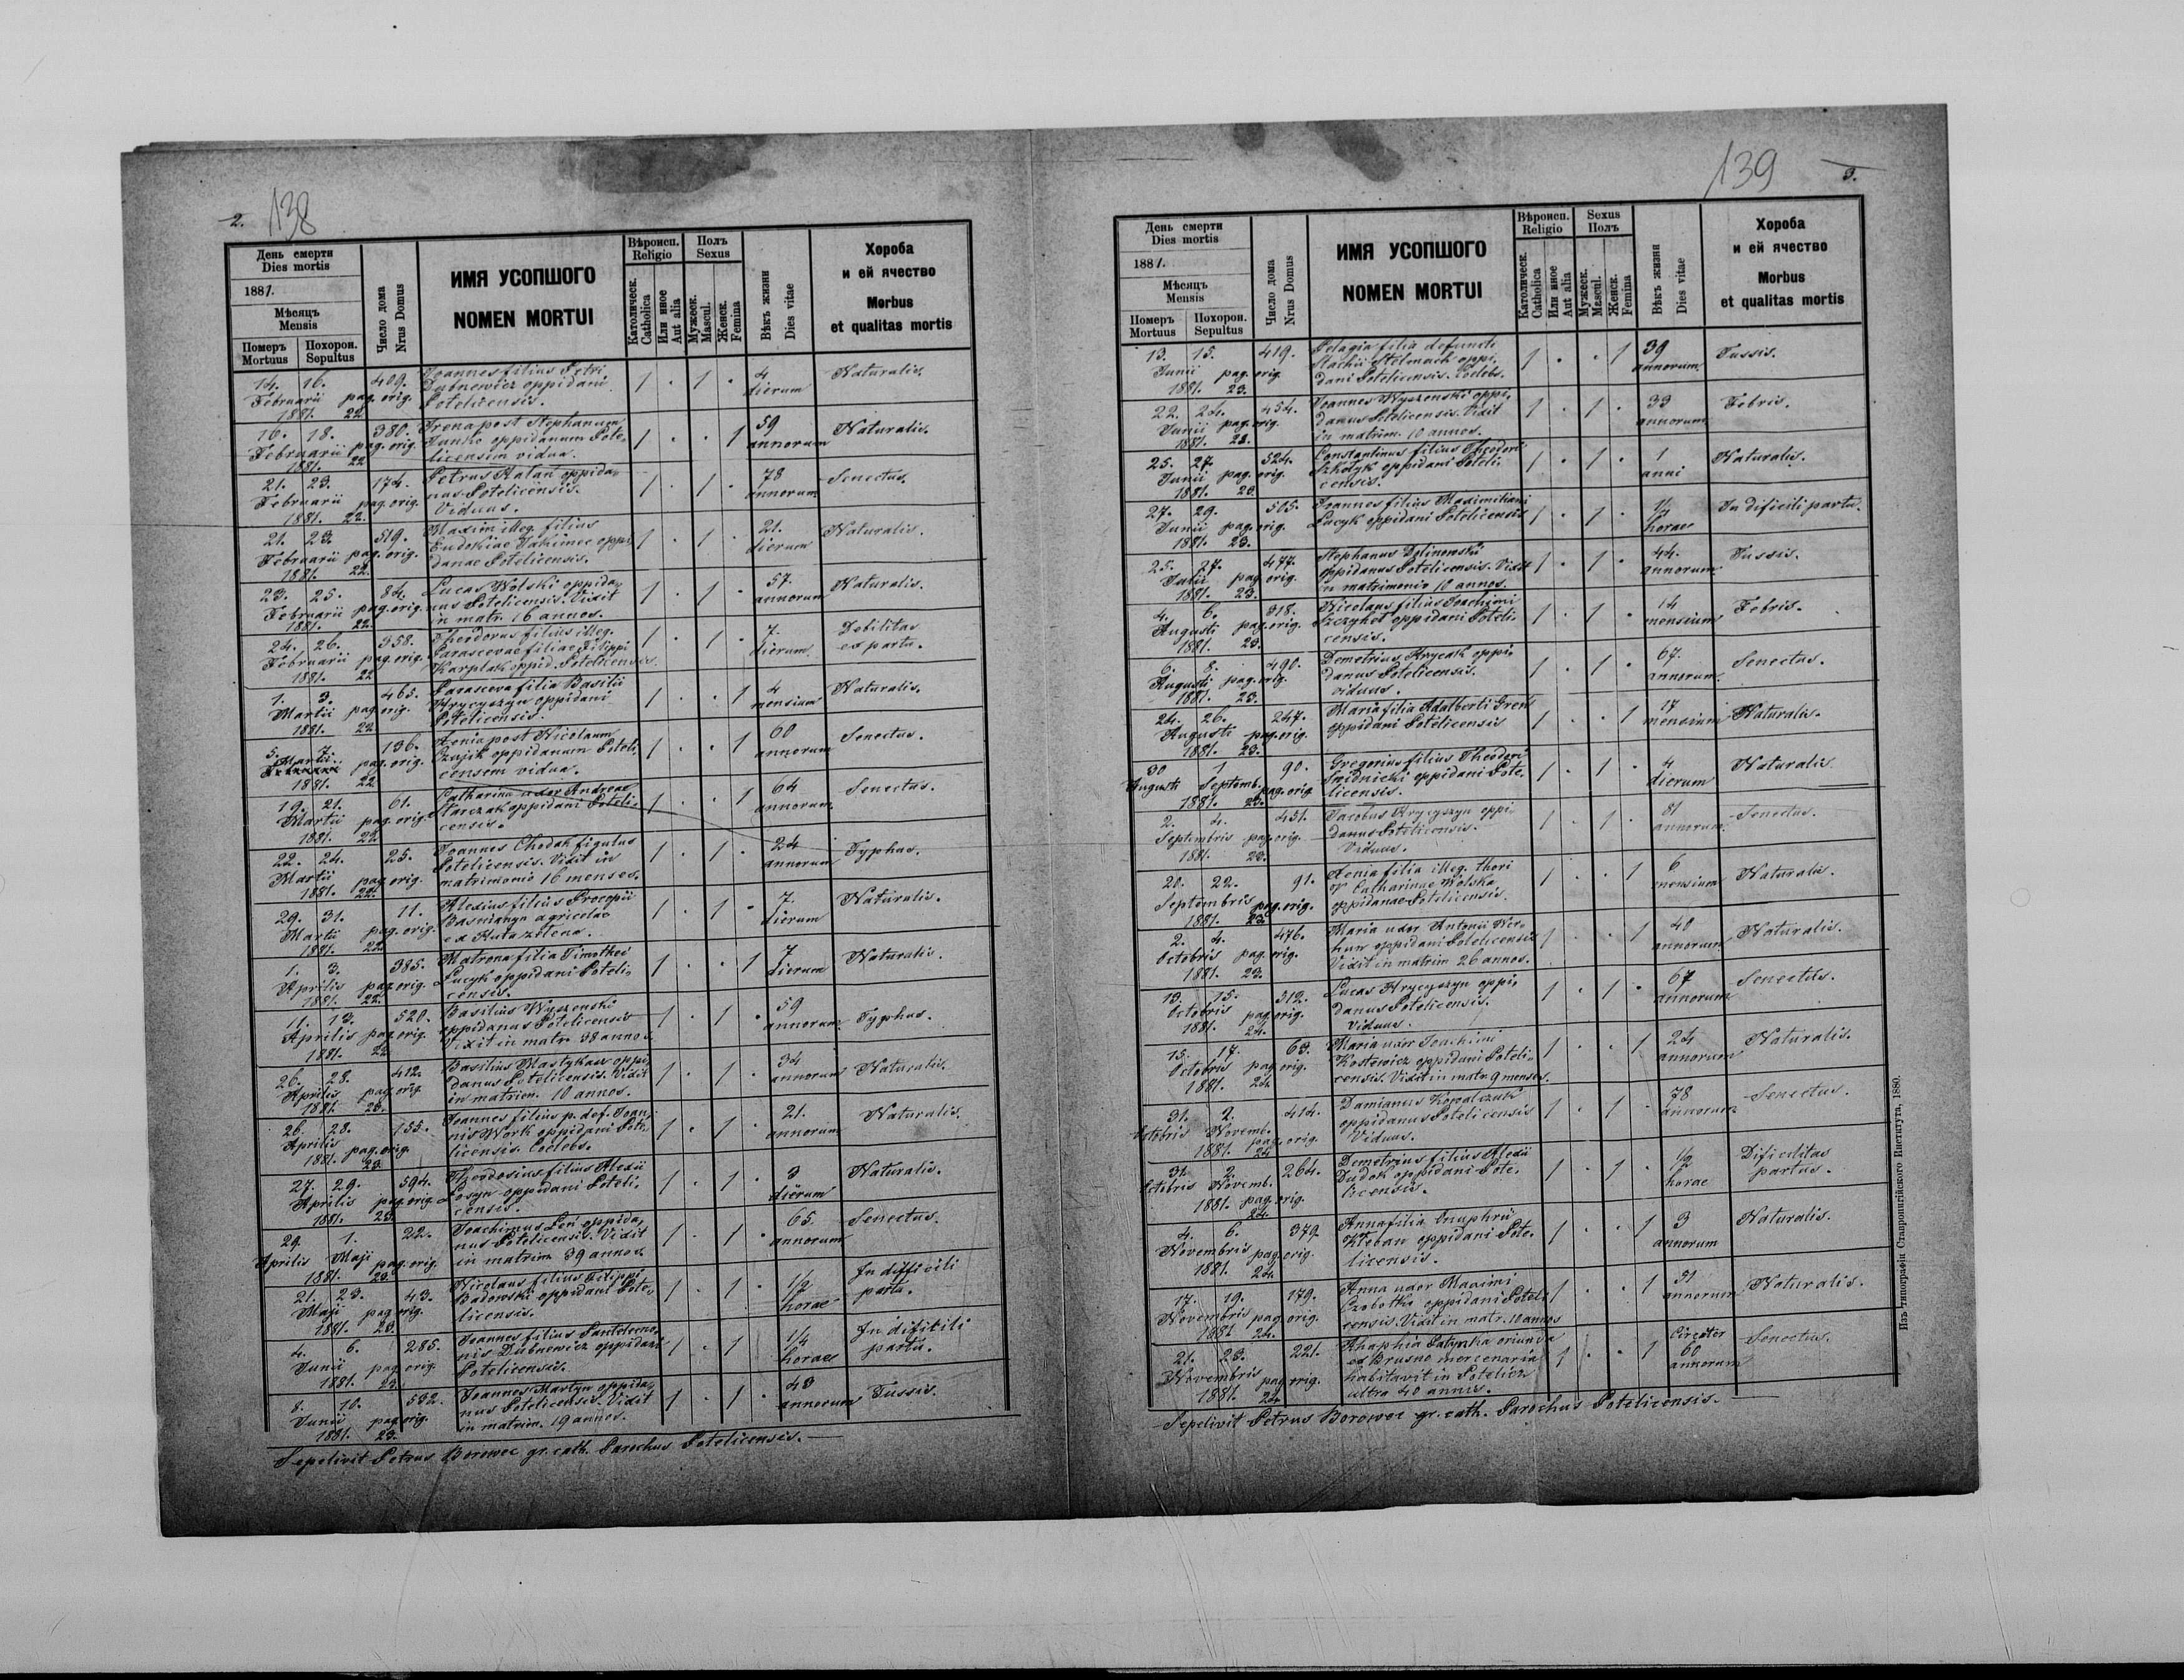 2. 138
День смерти
Dies mortis
1881.
Мѣсяцъ
Mensis
Померъ Mortuus
Похорон. Sepultus
Число дома
Nrus Domus
ИМЯ УСОПШОГО
NOMEN MORTUI
Вѣроисп.
Religio
Католическ.
Catholica
Или иное
Aut alia
Полъ
Sexus
Мужеск.
Mascul.
Женск.
Femina
Вѣкъ жизни
Dies vitae
Хороба
и ей ячество
Morbus
et qualitas mortis
14. 16. 409. Joannes filius Petri 1 . 1 . 4 Naturalis.
Februarii pag. orig. Dubnewicz oppidani dierum
1881. 22. Potelicensis.
16. 18. 380. Irena post Stephanum 1 . . 1 59 Naturalis.
Februarii pag. orig. Junko oppidanum Pote- annorum
1881. 22 licensem vidua.
21. 23. 174. Petrus Hatan oppida- 1 . 1 . 78 Senectus.
Februarii pag. orig. nus Potelicensis. annorum
1881. 22. Viduus.
21. 23. 519. Maxim illeg. filius 1 . 1 . 21. Naturalis.
Februarii pag. orig. Eudokiae Jakimec oppi- dierum
1881. 22. danae Potelicensis.
23. 25. 84. Lucas Wolski oppida- 1 . 1 . 57. Naturalis.
Februarii pag. orig. nus Potelicensis. Vixit annorum
1881. 22. in matr. 16 annos.
24. 26. 358. Theodorus filius illeg. 1 . 1 . 7. Debilitas
Februarii pag. orig. Parascevae filiae Filippi dierum ex partu.
1881. 22 Karplak oppid. Potelicensis.
1. 3. 465. Parasceva filia Basilii 1 . . 1 4 Naturalis.
Martii pag. orig. Hrycyszyn oppidani mensium
1881. 22 Potelicensis.
5. 7. 136. Xenia post Nicolaum 1 . . 1 60 Senectus.
Martii pag. orig. Czajik oppidanum Poteli- annorum
1881. 22 censem vidua.
19. 21. 61. Catharina uxor Andreae 1 . . 1 64 Senectus.
Martii pag. orig. Starczak oppidani Poteli- annorum
1881. 22 censis.
22. 24. 25. Joannes Chodak figulus 1 . 1 . 24 Typhus.
Martii pag. orig. Potelicensis. Vixit in annorum
1881. 22. matrimonio 16 menses.
29. 31. 11. Alexius filius Procopii 1 . 1 . 7. Naturalis.
Martii pag. orig. agricolae dierum
1881. 22. ex Huta zelena.
1. 3. 385. Matrona filia Timothei 1 . . 1 7 Naturalis.
Aprilis pag. orig. Lucyk oppidani Poteli- dierum
1881. 22. censis.
11. 13. 520. Basilius Wyszenski 1 . 1 . 59 Typhus.
Aprilis pag. orig. oppidanus Potelicensis annorum
1881. 22 Vixit in matr. 38 annos.
26. 28. 412. Basilius Mastykasz oppi- 1 . 1 . 34 Naturalis.
Aprilis pag. orig. danus Potelicensis. Vixit annorum
1881. 23. in matrim. 10 annos.
26. 28. 155. Joannes filius p. def. Joan- 1 . 1 . 21. Naturalis.
Aprilis nis Work oppidani Pote- annorum
1881. pag. orig. licensis. Coelebs.
23.
27. 29. 594. Theodosius filius Alexii 1 . 1 . 3 Naturalis.
Aprilis pag. orig. Losyn oppidani Poteli- dierum
1881. 23. censis.
29. 1. 22. Joachimus Leń oppida- 1 . 1 . 65. Senectus.
Aprilis Maji pag. orig. nus Potelicensis. Vixit annorum
1881. 23. in matrim 39 annos.
21. 23. 43. Nicolaus filius Filippi 1 . 1 . 1/2 In difficili
Maji pag. orig. Badowski oppidani Pote- horae partu.
1881. 23. licensis.
4. 6. 285. Joannes filius Panteleemo- 1 . 1 1/4 In dificili
Junii pag. orig. nis Dubnewicz oppidani horae partu.
1881. 23. Potelicensis.
8. 10. 532. Joannes Martyn oppida- 1 . 1 . 43 Tussis.
Junii pag. orig. nus Potelicensis. Vixit annorum
1881. 23. in matrim. 19 annos.
Sepelivit Petrus Borowec gr. cath. Parochus Potelicensis.
139 3.
День смерти
Dies mortis
1881.
Мѣсяцъ
Mensis
Померъ Mortuus
Похорон. Sepultus
Число дома
Nrus Domus
ИМЯ УСОПШОГО
NOMEN MORTUI
Вѣроисп.
Religio
Католическ.
Catholica
Или иное
Aut alia
Sexus
Полъ
Мужеск.
Mascul.
Женск.
Femina
Вѣкъ жизни
Dies vitae
Хороба
и ей ячество
Morbus
et qualitas mortis
13. 15. 419. Pelagia filia defuncti 1 . . 1 39 Tussis.
Junii pag. orig. Stachii Stelmach oppi- annorum
1881. 23. dani Potelicensis. Coelebs.
22. 24. 454. Joannes Wyszenski oppi- 1 . 1 . 33 Febris.
Junii pag. orig. danus Potelicensis. Vixit annorum
1881. 23. in matrim. 10 annos.
25. 27. 524. Constantinus filius Theodori 1 . 1 . 1 Naturalis.
Junii pag. orig. Szkolyk oppidani Poteli- anni
1881. 23. censis.
27. 29. 505. Joannes filius Maximiliani 1 . 1 . 1/2 In dificili partu.
Junii pag. orig. Lucyk oppidani Potelicensis horae
1881. 23.
25. 27. 477. Stephanus 1 . 1 . 44. Tussis.
Julii pag. orig. oppidanus Potelicensis. Vixit annorum
1881. 23. in matrimonio 10 annos.
4. 6. 318. Nicolaus filius Joachimi 1 . 1 . 14 Febris.
Augusti pag. orig. oppidani Poteli- mensium
1881. 23. censis.
6. 8. 490. Demetrius Hrycak oppi- 1 . 1 . 67. Senectus.
Augusti pag. orig. danus Potelicensis. annorum
1881. 23. viduus.
24. 26. 247. Maria filia Adalberti Greń 1 . . 1 17 Naturalis.
Augusti pag. orig. oppidani Potelicensis mensium
1881. 23.
30 1 90. Gregorius filius Theodori 1 . 1 . 4 Naturalis.
Augusti Septemb. pag. orig. Smidnicki oppidani Pote- dierum
1881. 23. licensis.
2. 4. 451. Jacobus Hrycyszyn oppi- 1 . 1 . 81 Senectus.
Septembris pag. orig. danus Potelicensis. annorum
1881. 23. Viduus.
20. 22. 91. Xenia filia illeg. thori 1 . . 1 6 Naturalis.
Septembris pag. orig. Catharinae Wolska mensium
1881. 23. oppidanae Potelicensis.
2. 4. 476. Maria uxor Antonii Wer- 1 . . 1 40 Naturalis.
Octobris pag. orig. hun oppidani Potelicensis annorum
1881. 23. Vixit in matrim 26 annos.
13. 15. 312. Lucas Hrycyszyn oppi- 1 . 1 . 67 Senectus.
Octobris pag. orig. danus Potelicensis. annorum
1881. 24. Viduus.
15. 17. 63. Maria uxor Joachimi 1 . . 1 24 Naturalis.
Octobris pag. orig. Kostewicz oppidani Poteli- annorum
1881. 24. censis. Vixit in matr. 9 menses.
31. 2. 414. Damianus Kowalczuk 1 . 1 . 78 Senectus.
Octobris Novemb. oppidanus Potelicensis annorum
1881. pag. orig. Viduus.
24.
31. 2. 264. Demetrius filius Alexii 1 . 1 . 1/2 Dificilitas
Octobris Novemb. Dudok oppidani Pote- horae partus.
1881. pag. orig. licensis.
24.
4. 6. 379 Anna filia Onuphrii 1 . . 1 3 Naturalis.
Novembris pag. orig. Kleban oppidani Pote- annorum
1881. 24. licensis.
17. 19. 179. Anna uxor Maximi 1 . . 1 51 Naturalis.
Novembris pag. orig. Czobotko oppidani Poteli- annorum
1881 24. censis. Vixit in matr. 10 annos
21. 23. 221. oriunda 1 . . 1 Circiter Senectus.
Novembris pag. orig. ex Brusno mercenaria 60
1881. 24. habitavit in Potelicz annorum
ultra 40 annis.
Sepelivit Petrus Borowec gr. cath. Parochus Potelicensis.
Изъ типографіи Ставропигійского Института, 1880.